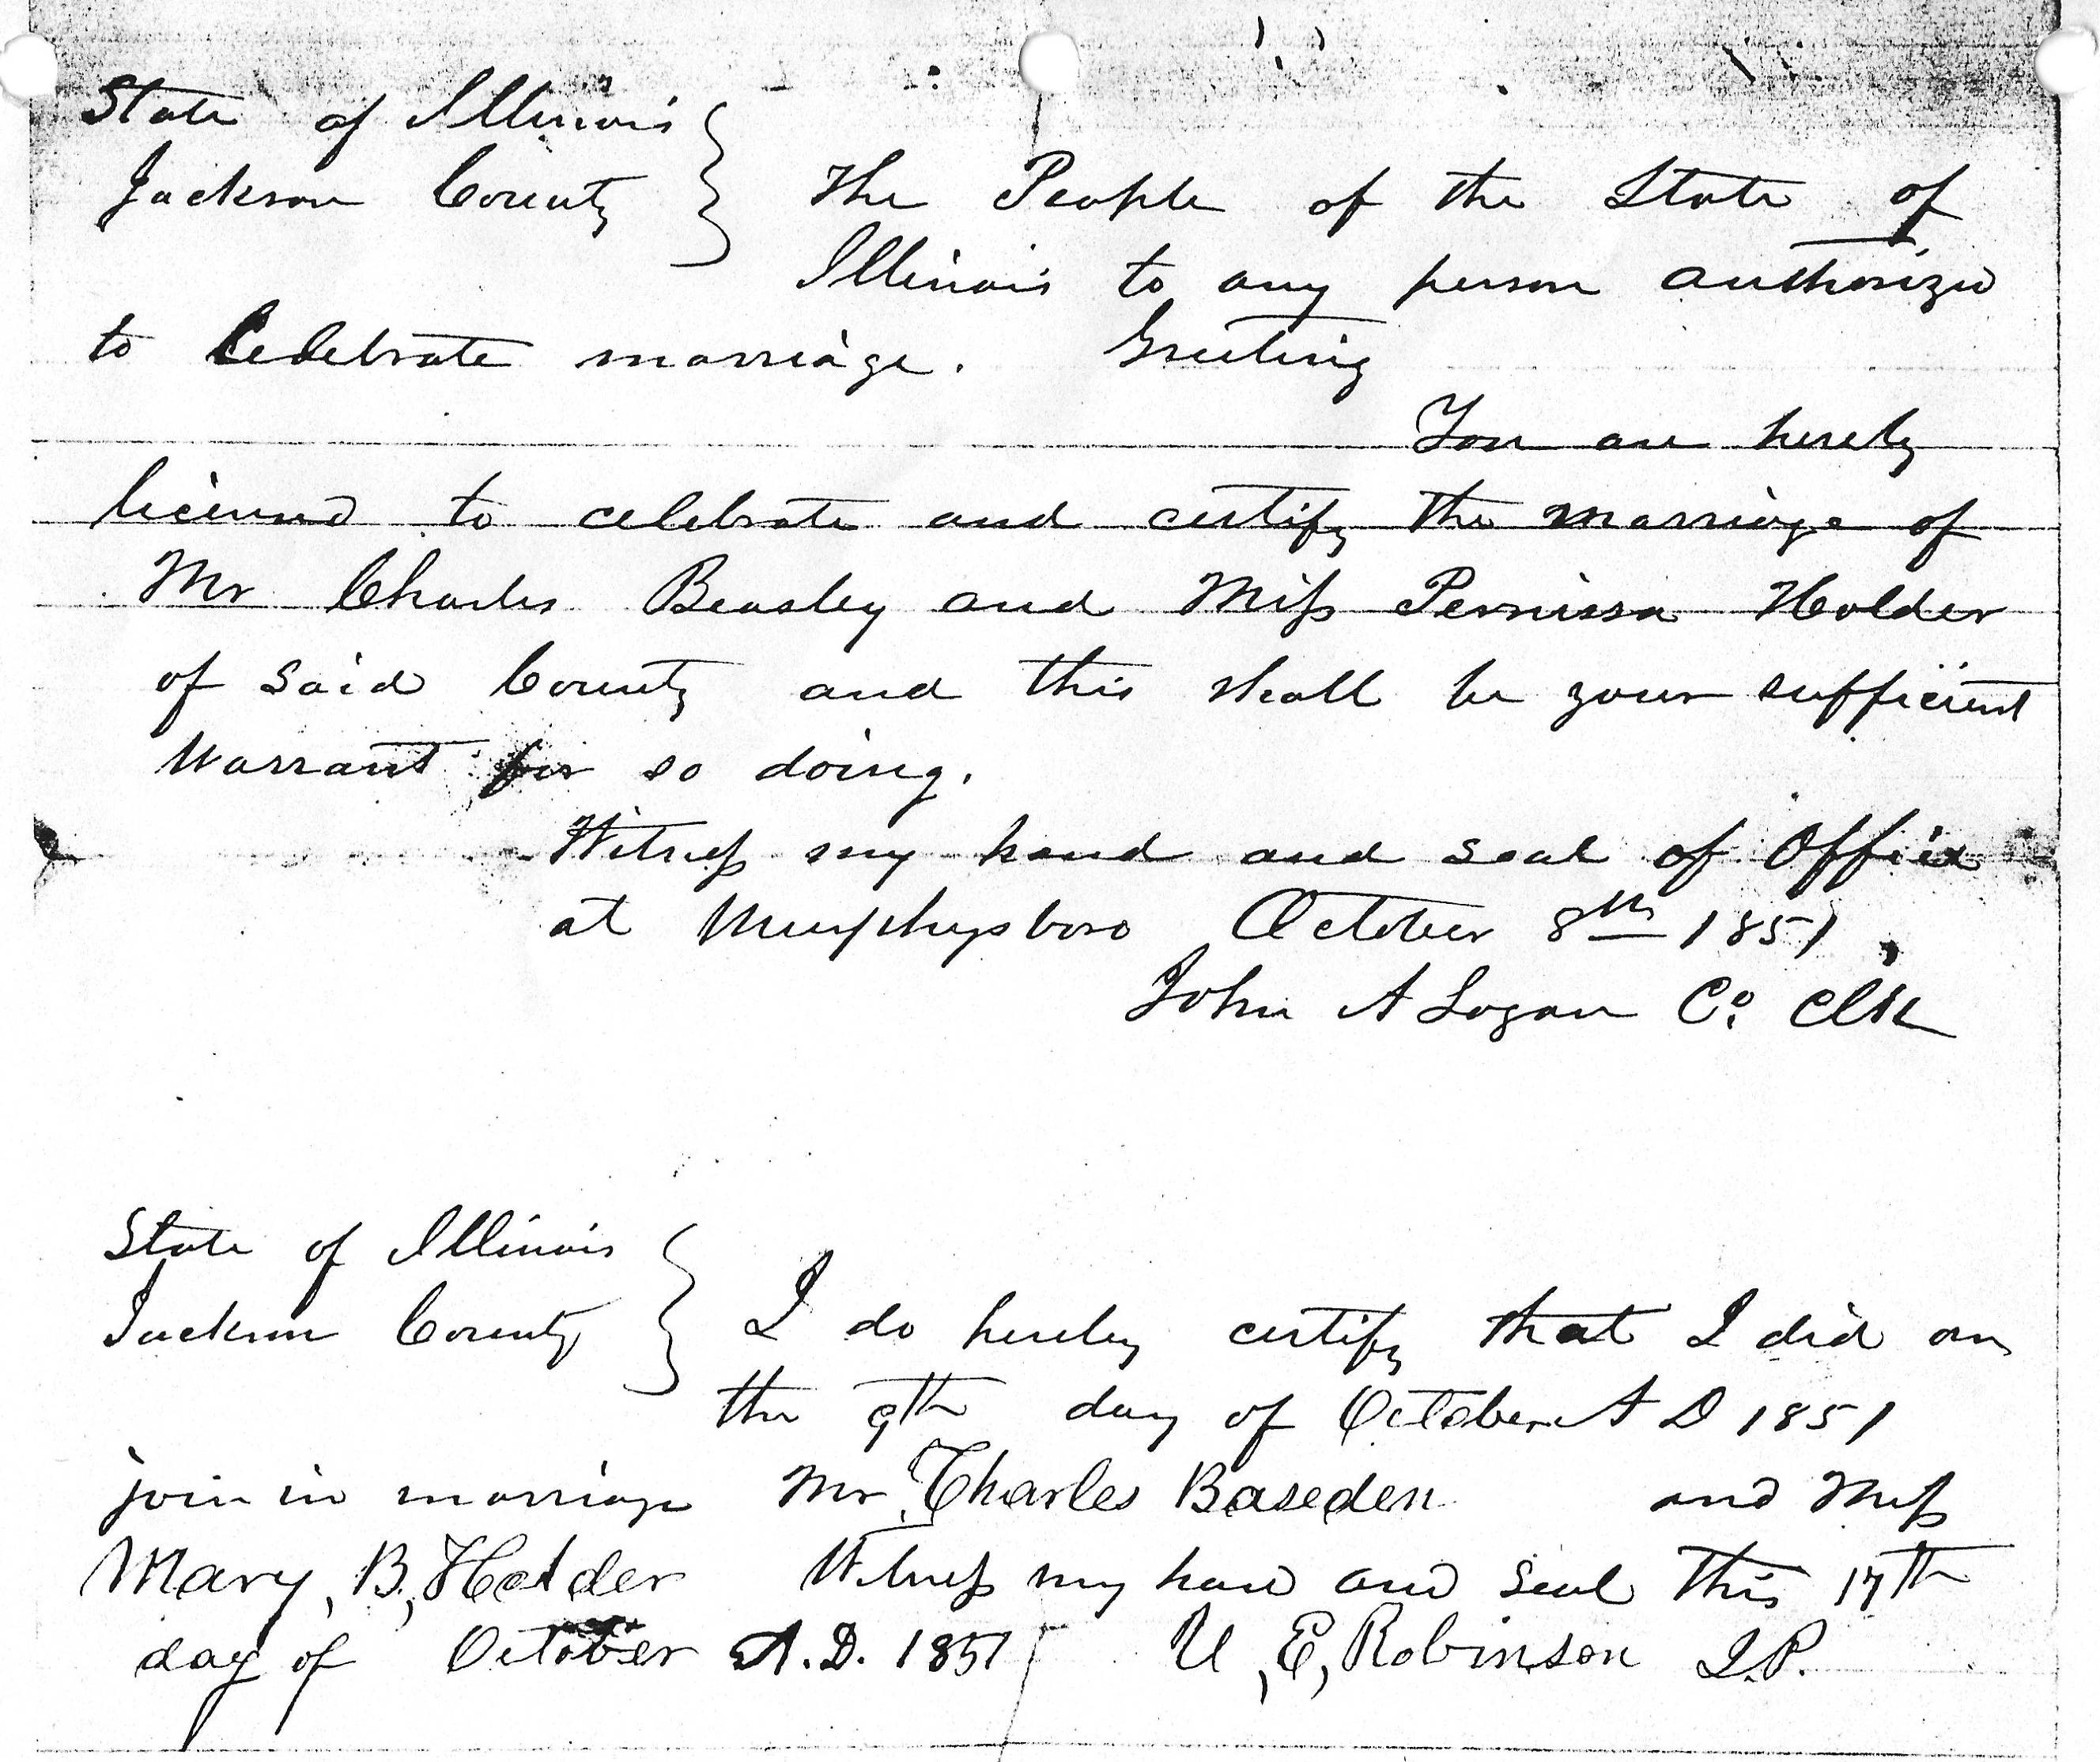 State of Illinois
Jackson County } The People of the State of
Illinois to any person authorized
to Celebrate marriage. Greeting
You are hereby
licensed to celebrate and certify the marriage of
Mr Charles Beasley and Miss Pernissa Holder
of said County and this shall be your sufficient
Warrant for so doing.
Witness my hand and seal of Office
at Murphysboro October 8th 1851,
John A Logan Co. Clk
State of Illinois
Jackson County } I do hereby certify that I did on
the 9th day of October A D 1851
join in marriage Mr, Charles Baseden and Miss
Mary, B, Holder Witness my hand and seal this 17th
day of October A.D. 1851 U, E, Robinson J.P.